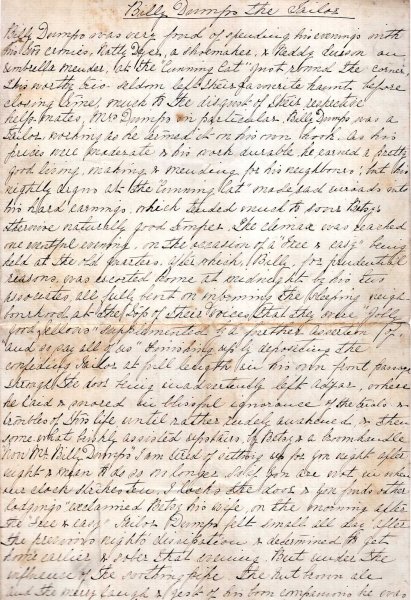 Billy Dumps the Tailor
Billy Dumps was very fond of spending his evenings with
his two cronies, Natty Dyer, a shoemaker, & Neddy an
umbrella mender, at the "Cunning Cat" just round the corner
This worthy trio seldom left their favourite haunt before
closing time, much to the disgust of their respective
help-mates, Mrs Dumps in particular. Billy Dumps was a
Tailor working as he termed it on his own hook. As his
prices were moderate & his work durable he earned a pretty
good living, making & mending for his neighbours; but his
nightly at the "Cunning Cat" made sad inroads into
his hard earnings, which tended much to sour Betsy's
otherwise naturally good temper. The climax was reached
one eventful evening, on the occasion of a "free & easy" being
held at the old quarters. After which, Billy, for prudential
reasons, was escorted home at midnight by his two
associates, all fully bent on informing the sleeping neigh-
bourhood at the top of their voices, that they were "jolly
good fellows" supplemented by a further assertion of
"and so say all of us" finishing up by depositing the
confiding Tailor at full length in his own front passage
through the door being inadvertently left adjar, where
he laid & snored in blissful ignorance of the trials &
troubles of this life until rather rudely awakened, & then
some what briskly assisted upstairs by Betsy & a broomhandle
Now Mr Billy Dumps I am tired of sitting up for you night after
night & mean to do so no longer, so if you are not in when
our clock strikes ten, I locks the door & you finds other
lodgings" exclaimed Betsy his wife, on the morning after
the free & easy. Tailor Dumps felt small all day after
the previous night's dissipation & determined to get
home earlier & sober that evening. But under the
influence of the soothing pipe, the nut brown ale
and the merry laugh & jest of his boon companions he was